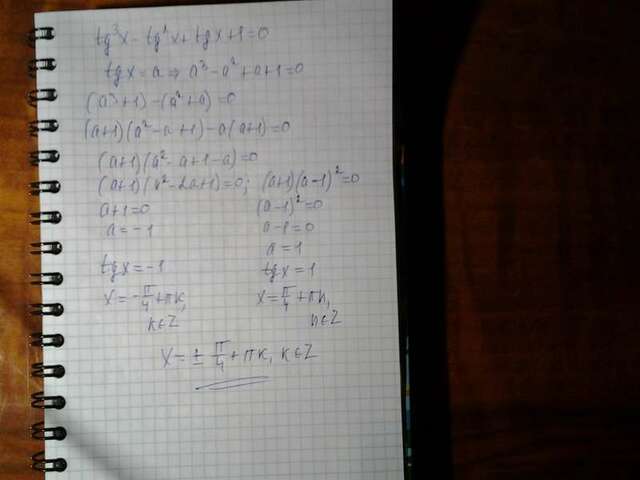 tg³x - tg²x + tgx + 1 = 0
tgx = a ⇒ a³ - a² + a + 1 = 0
(a³ + 1) - (a² + a) = 0
(a+1)(a² - a + 1) - a(a+1) = 0
(a+1)(a² - a + 1 - a) = 0
(a+1)(a² - 2a + 1) = 0; (a+1)(a-1)² = 0
a+1=0 (a-1)² = 0
a = -1 a-1=0
a = 1
tgx = -1 tgx = 1
x = -π/4 + πk, x = π/4 + πn,
k∈Z n∈Z
x = ± π/4 + πk, k∈Z